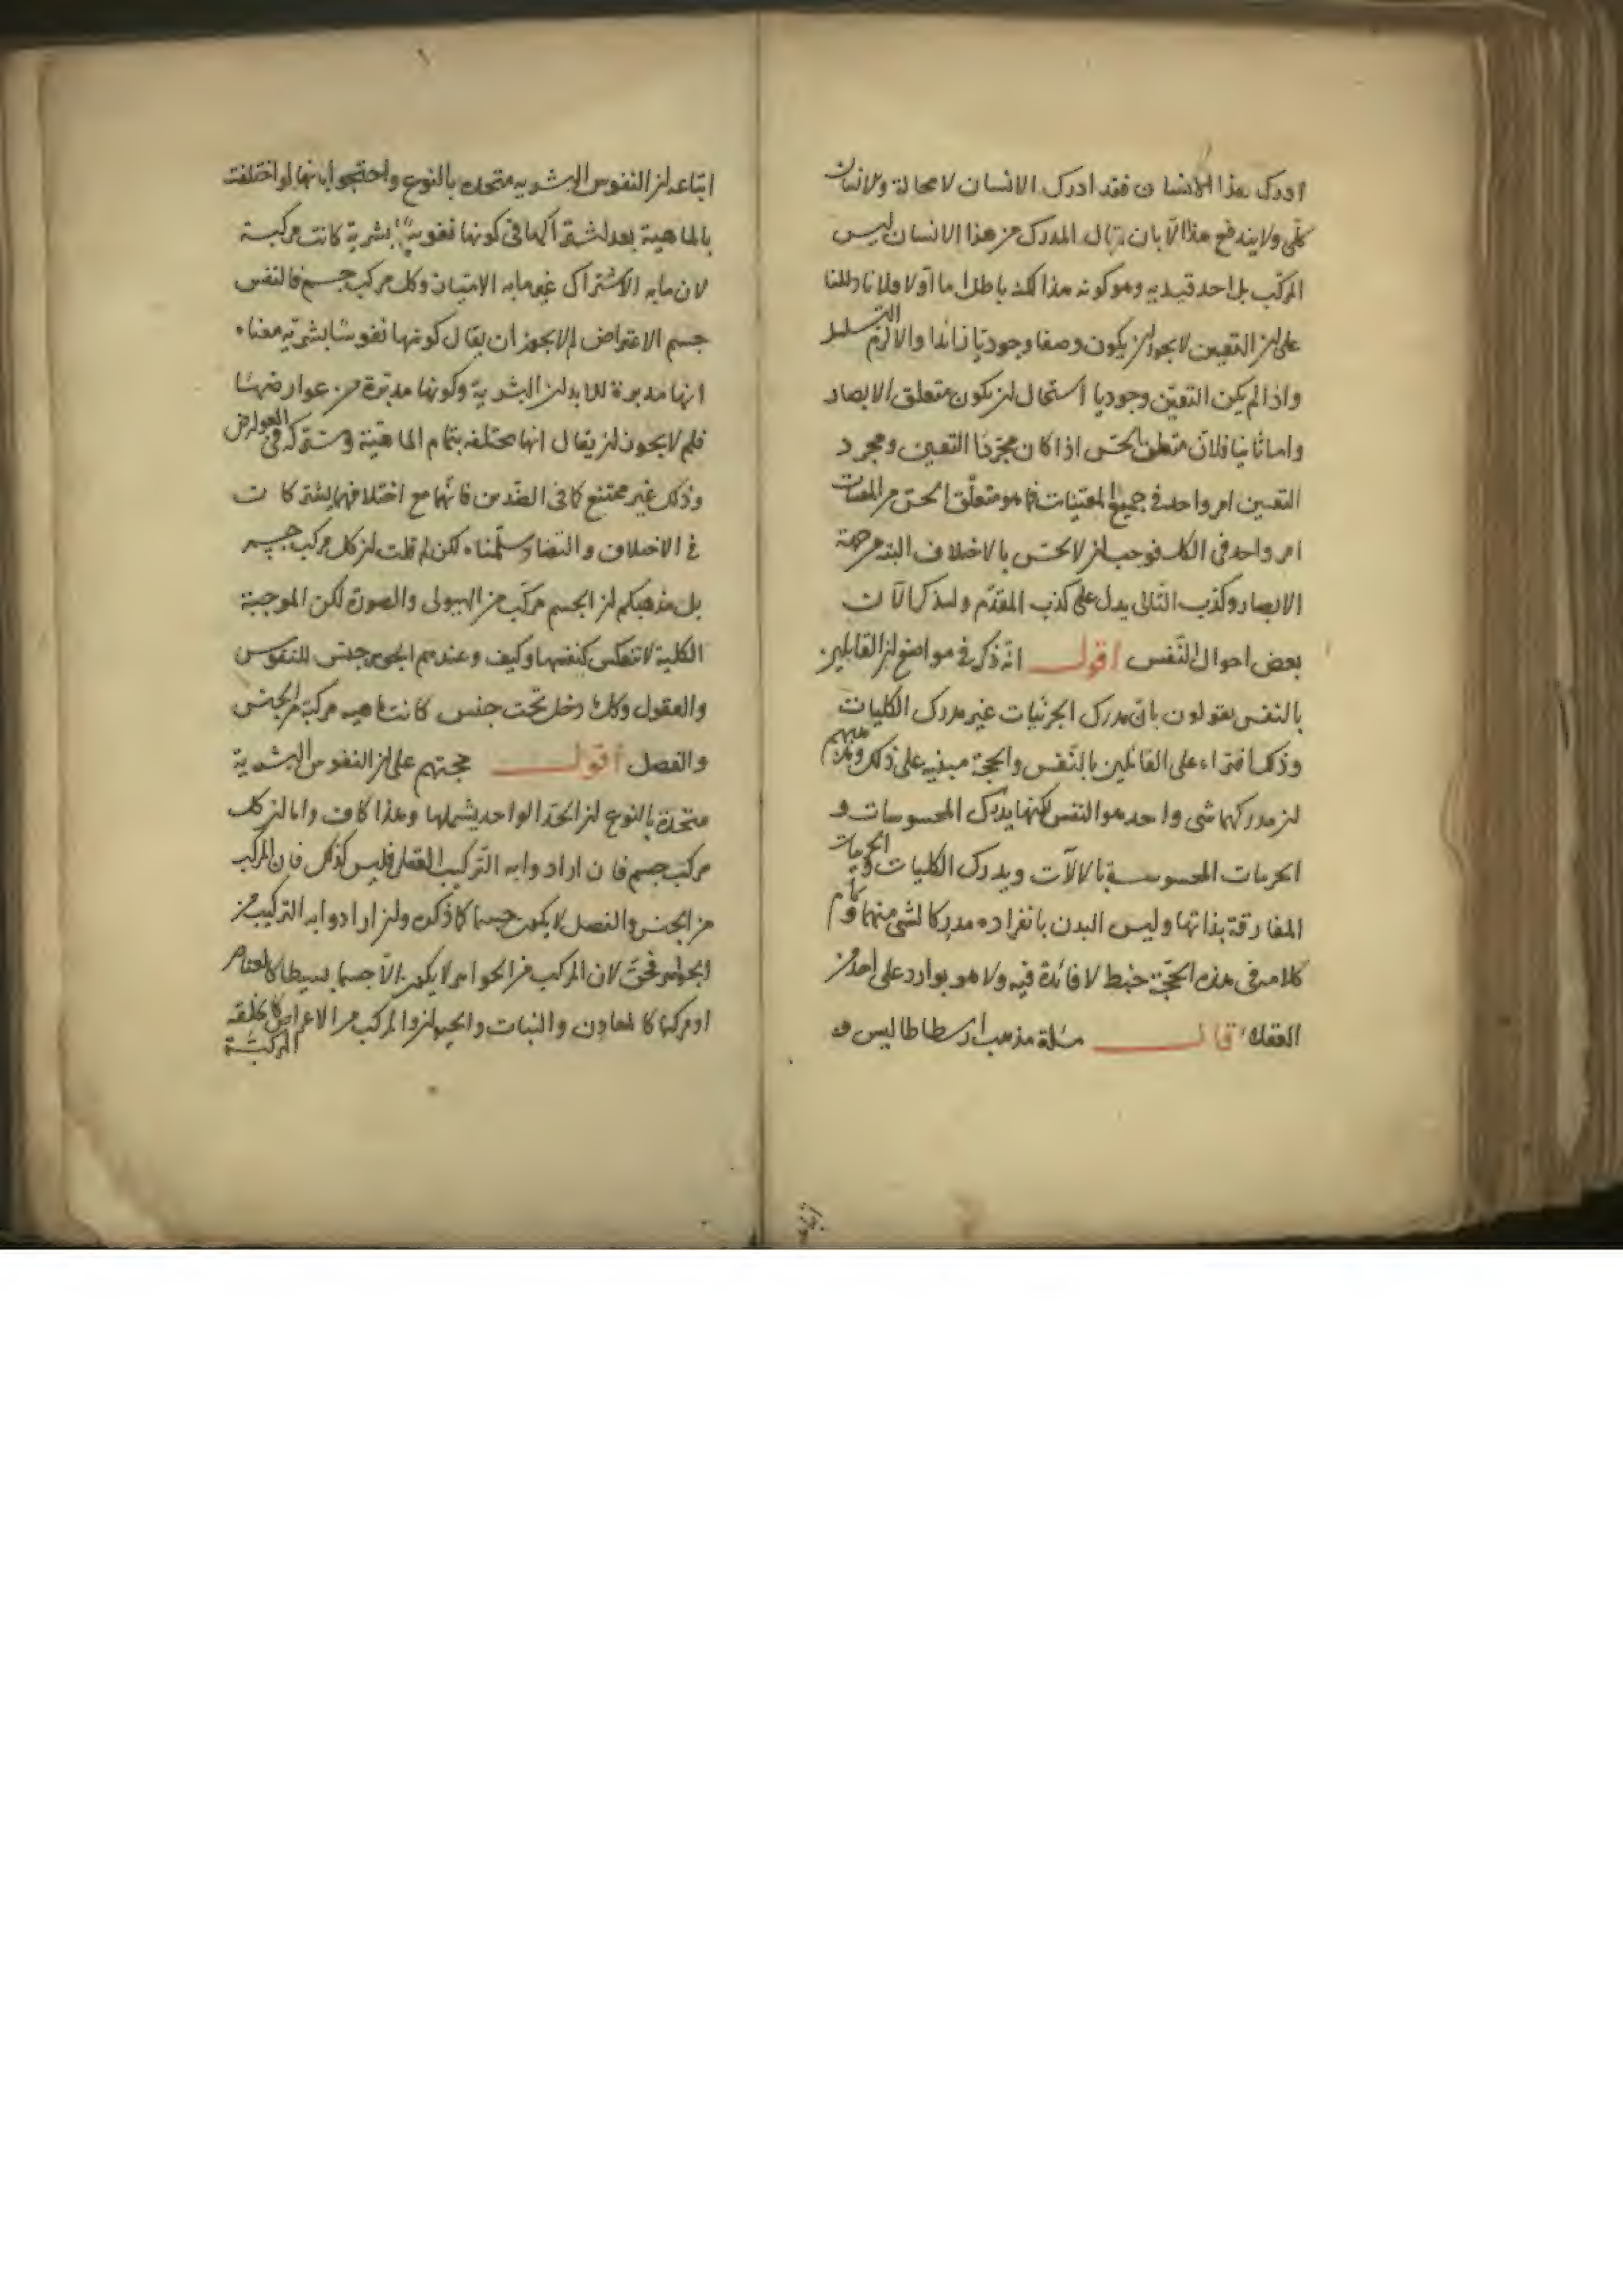 ادرك هذا الانسان فقد ادرك الانسان لا محالة والانسان
كلّى ولا يندفع هذا الّا بان يقال المدرك من هذا الانسان ليس
المركّب بل احد قيديه وهو كونه هذا لكنه باطل اما اوّلا فلانا دللنا
على ان التعيين لا يجوز ان يكون وصفا وجوديا زائدا والا لزم التسلسل
واذا لم يكن التعيّن وجوديا استحال ان يكون متعلق الابصار
واما ثانيا فلانّ متعلق الحسّ اذا كان مجرّد التعيين ومجرد
التعيين امر واحد فى جميع المعيّنات فما هو متعلّق الحسّ من المعينات
امر واحد فى الكل فوجب ان لا يحسّ بالاختلاف البتة من جهة
الابصار وكذب التّالى يدل على كذب المقدّم ولنذكر الآن
بعض احوال النّفس اقول انه ذكر فى مواضع ان القايلين
بالنفس يقولون بانّ مدرك الجزئيات غير مدرك الكليات
وذلك افتراء على القائلين بالنّفس والحجة مبنيه على ذلك ومذهبهم
ان مدركهما شى واحد هو النفس لكنها يدرك المحسوسات و
الجزيات المحسوسة بالالآت ويدرك الكليات والجزيات
المفارقة بذاتها وليس البدن بانفراده مدركا لشى منهما وتمام
كلامه فى هذه الحجّة خبط لا فائدة فيه ولا هو بوارد على احد من
العقلاء قال مسئلة مذهب ارسطاطاليس و
اتباعه ان النفوس البشريه متحدة بالنوع واحتجوا بانها لو اختلفت
بالماهية بعد اشتراكها فى كونها نفوسا بشرية كانت مركبة
لان ما به الاشتراك غير ما به الامتياز وكل مركب جسم فالنفس
جسم الاعتراض لم لا يجوز ان يقال كونها نفوسا بشريّه معناه
انها مدبرة للابدان البشرية وكونها مدبّرة من عوارضها
فلم لا يجوز ان يقال انها مختلفه بتمام الماهيّة ومشتركة فى العوارض
وذلك غير ممتنع كما فى الضّدين فانّهما مع اختلافهما يشتركان
فى الاختلاف والتضاد سلّمناه لكن لم قلت ان كل مركب جسم
بل مذهبكم ان الجسم مركّب من الهيولى والصورة لكن الموجبة
الكلية لا تنعكس كنفسها وكيف وعندهم الجوهر جنس للنفوس
والعقول وكل ما دخل تحت جنس كانت ماهيه مركبة من الجنس
والفصل اقول حجتهم على ان النفوس البشرية
متحدة بالنوع ان الحدّ الواحد يشملها وهذا كاف واما ان كل
مركب جسم فان ارادوا به التّركيب العقلى فليس كذلك فان المركب
من الجنس والفصل لا يكون جسما كما ذكره وان ارادوا به التركيب من
الجواهر فحقّ لان المركب من الجواهر لا يكون الّا جسما بسيطا كالعناصر
او مركبا كالمعادن والنبات والحيوان والمركب من الاعراض كالخلقه
المركبة